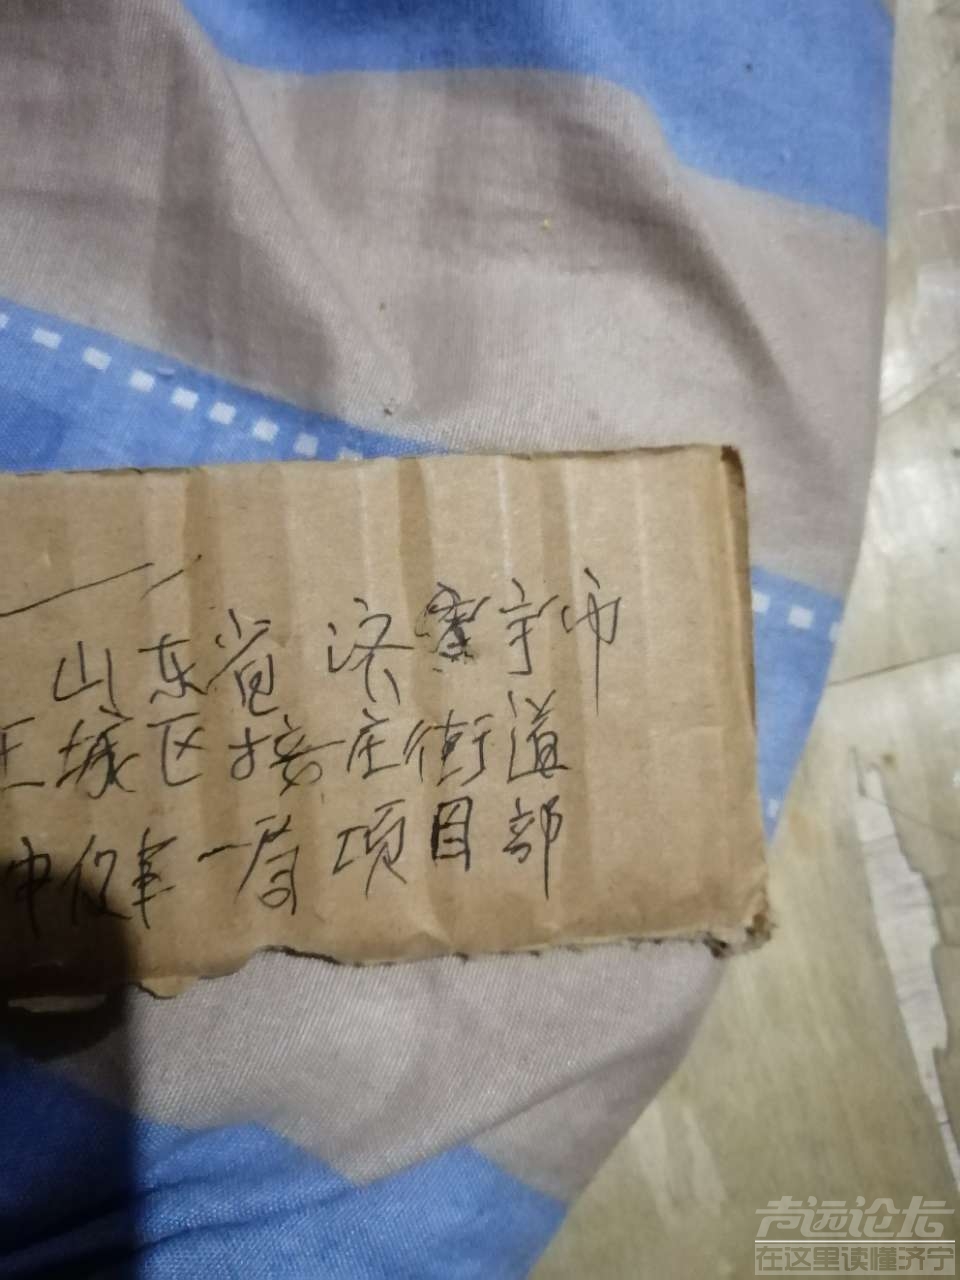 山东省济宁市
任城区接庄街道
中化学一局项目部
声远论坛
在这里读懂济宁